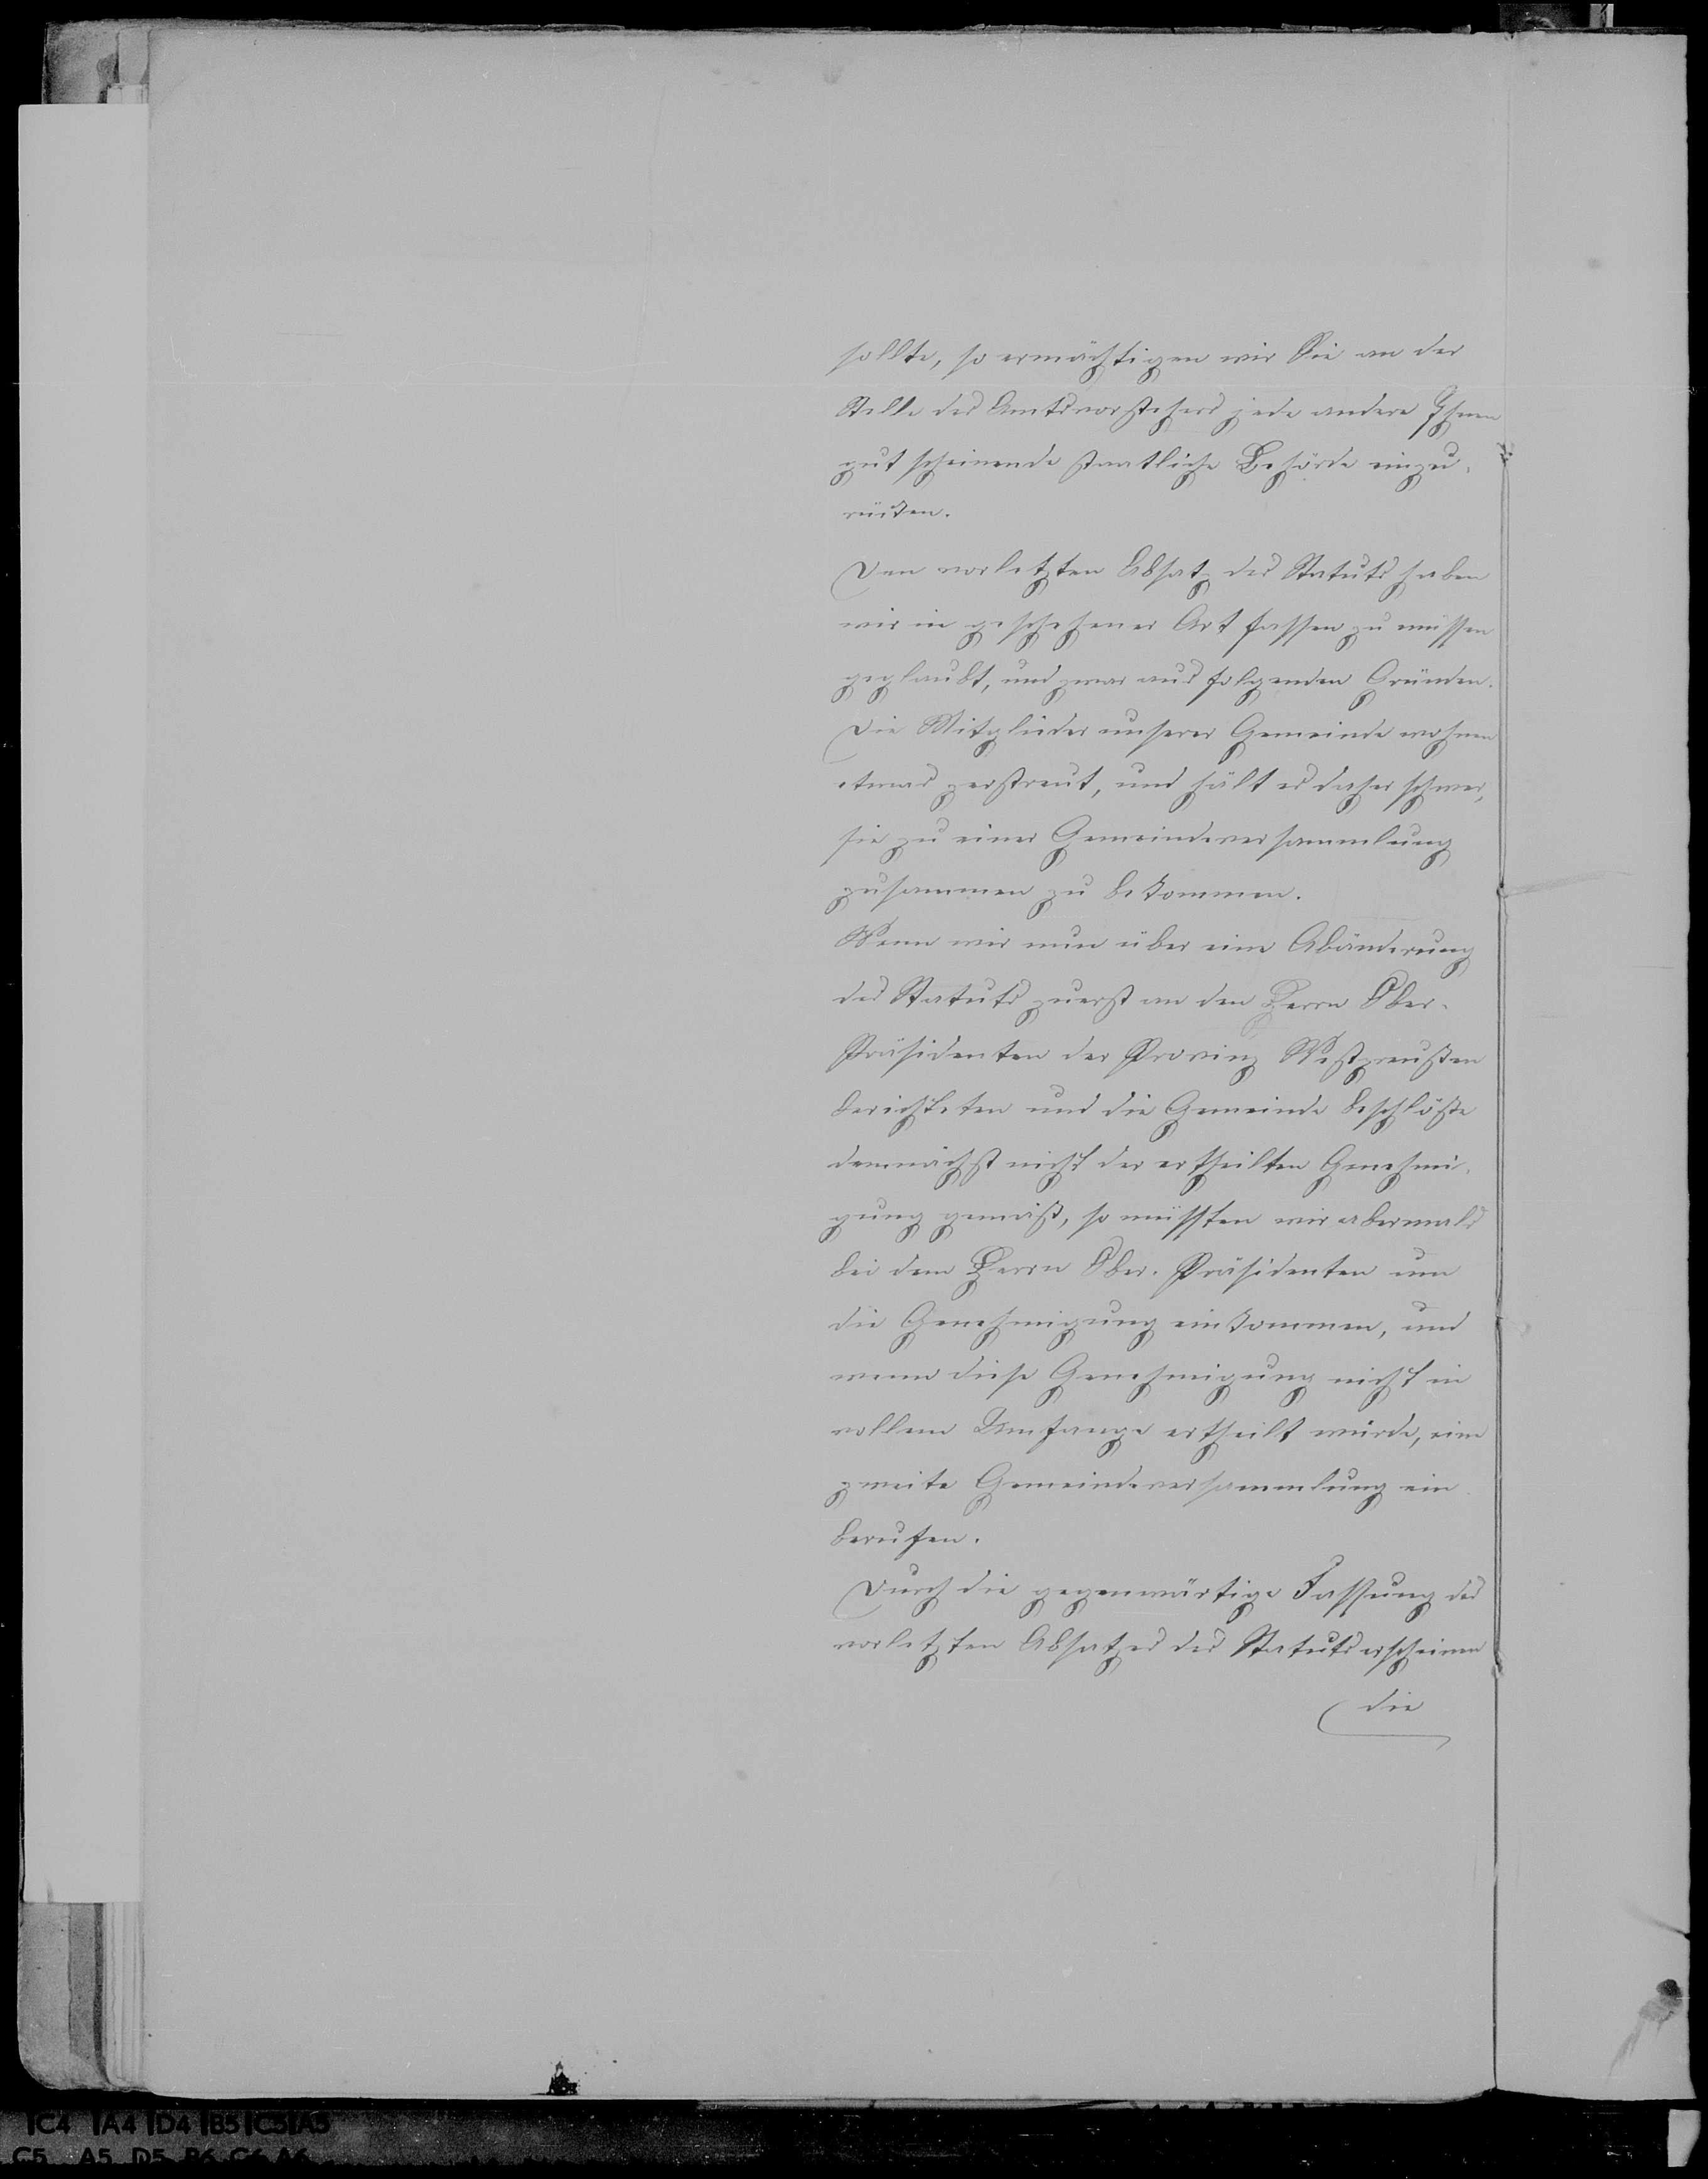 sollte, so ermächtigen wir Sie an der
Stelle des Amtsvorstehers jede andere Ihnen
gut scheinende staatliche Behörde einzu-
rücken.
Den vorletzten Absatz des Statuts haben
wir in geschehener Art fassen zu müssen
geglaubt, und zwar aus folgenden Gründen.
Die Mitglieder unserer Gemeinde wohnen
etwas zerstreut, und hält es daher schwer,
sie zu einer Gemeindeversammlung
zusammen zu bekommen.
Wenn wir nun über eine Abänderung
des Statuts zuerst an den Herrn Ober-
Präsidenten der Provinz Westpreußen
berichteten und die Gemeinde beschlöße
demnächst nicht der ertheilten Genehmi-
gung gemäß, so müssten wir abermals
bei dem Herrn Ober-Präsidenten um
die Genehmigung einkommen, und
wenn diese Genehmigung nicht in
vollem Umfange ertheilt würde, eine
zweite Gemeindeversammlung ein
berufen.
Durch die gegenwärtige Fassung des
vorletzten Absatzes des Statuts erscheinen
die
C4 A4 D4 B5 C5 A5
C5 A5 D5 B6 C6 A6